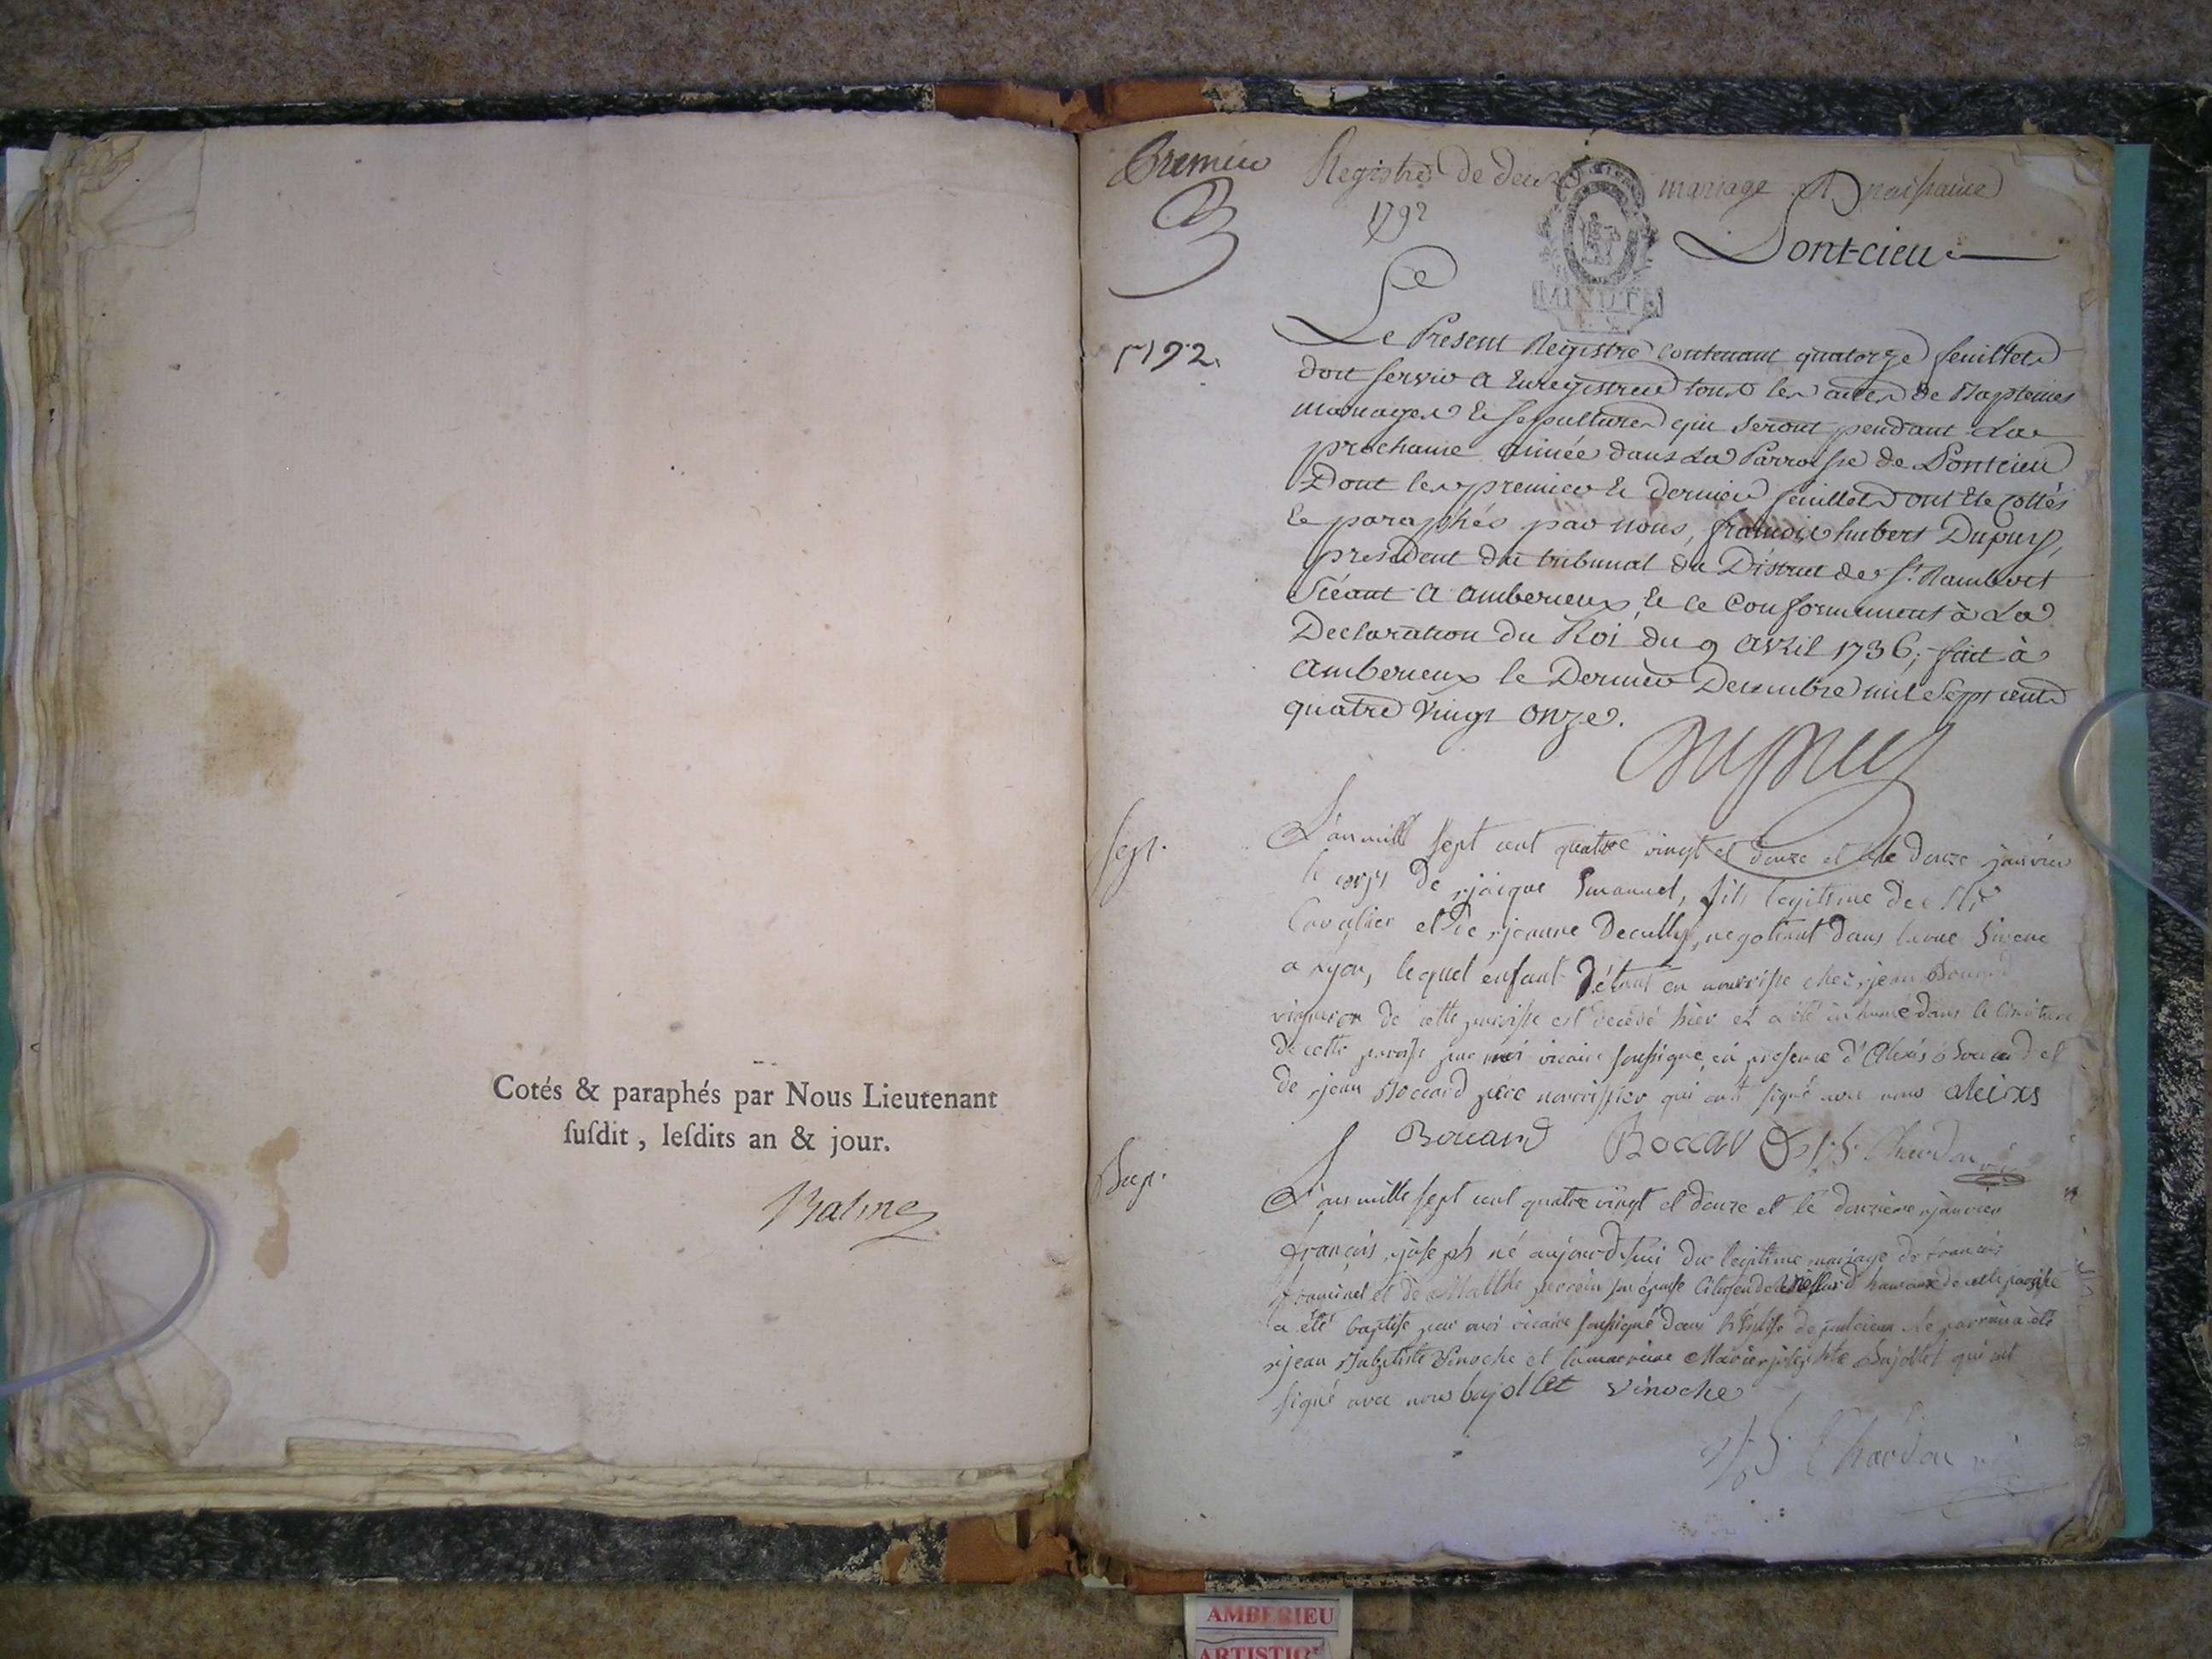 Cotés & paraphés par Nous Lieutenant
ſuſdit, leſdits an & jour.
Balme
Premier
Registre de deux mariage et naissance
1792
MINUTE
Pont-cieu
1792.
Le Present Registre contenant quatorze feuillets
doit servir a Enregistrer tous les actes de Baptemes
mariages & sepultures qui seront pendant La
prochaine année dans La Parroisse de Pontcieu
Dont les premier & dernier feuillets ont été cottés
& paraphés par nous, francois hubert Dupuy,
president du tribunal du District de St. Rambert
séeant a amberieux, & ce Conformement à La
Declaration du Roi du 9 avril 1736; fait à
amberieux le Dernier Decembre mil sept cent
quatre vingt onze.
Dupuy
Sept.
L'an mille sept cent quatre vingt et douze et le douze janvier
le corps de jacque Emanuel, fils legitime de
Cavalier et de jeanne Decully, negotiant dans la rue
a lyon, lequel enfant étant en nourrisse chez jean
vigneron de cette paroisse est décédé hier et a été inhumé dans le cimetiere
de cette paroisse par moi vicaire soussigné en presence d'Alexis Boccard et
de jean Boccard père nourrissier qui ont signé avec nous aleixs
Boucard Boccard J. S. Chardon
Bap.
L'an mille sept cent quatre vingt et douze et le douzième janvier
françois joseph né aujourd'hui du legitime mariage de francois
et de Marthe perrin son épouse Citoyen de hameau de cette paroisse
a été baptisé par moi vicaire soussigné dans l'Eglise de pontcieux le parrain a été
jean Babtiste Vinoche et la marraine Marie josephte Bajollet qui ont
signé avec nous bajollet vinoche
J. S. Chardon
AMBERIEU
ARTISTIQU